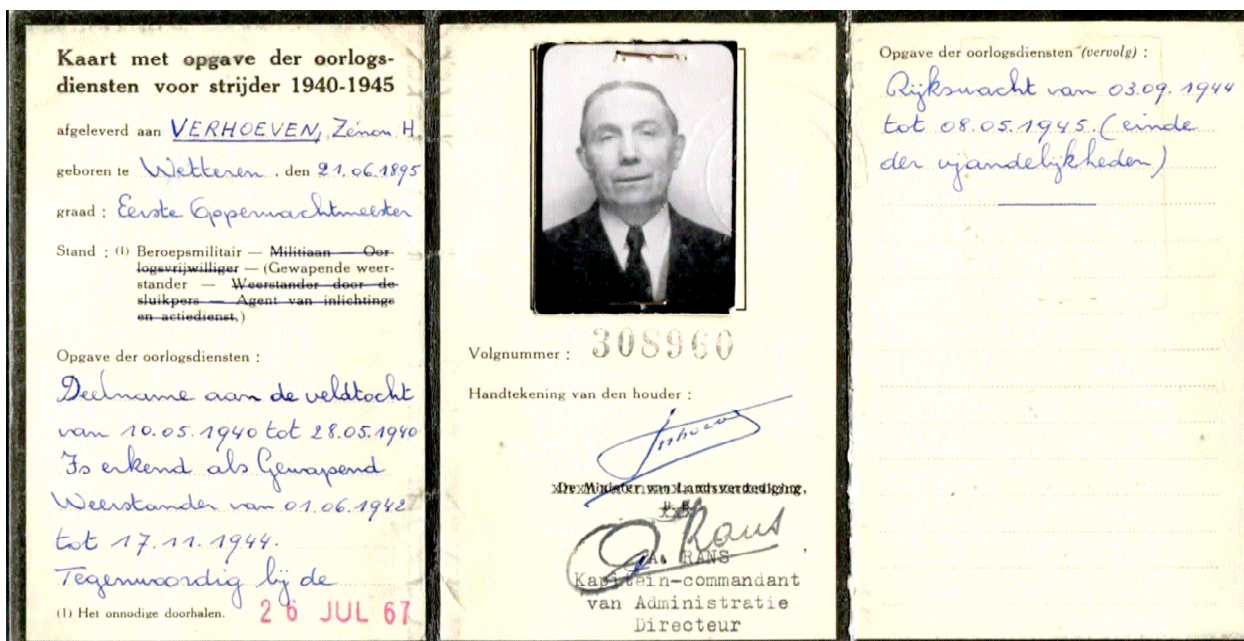 Kaart met opgave der oorlogs-
diensten voor strijder 1940-1945
afgeleverd aan VERHOEVEN, Zénon H.
geboren te Wetteren . den 21.06.1895
graad : Eerste Opperwachtmeester
Stand : (1) Beroepsmilitair — Militiaan — Oor-
logsvrijwilliger — (Gewapende weer-
stander — Weerstander door de
sluikpers — Agent van inlichtings
en actiedienst.)
Opgave der oorlogsdiensten :
Deelname aan de veldtocht
van 10.05.1940 tot 28.05.1940
Is erkend als Gewapend
Weerstander van 01.06.1942
tot 17.11.1944.
Tegenwoordig bij de
(1) Het onnodige doorhalen. 26 JUL 67
Volgnummer : 308960
Handtekening van den houder :
De Minister van Landsverdediging,
Rans
A. RANS
Kapitein-commandant
van Administratie
Directeur
Opgave der oorlogsdiensten (vervolg) :
Rijkswacht van 03.09.1944
tot 08.05.1945. (einde
der vijandelijkheden)